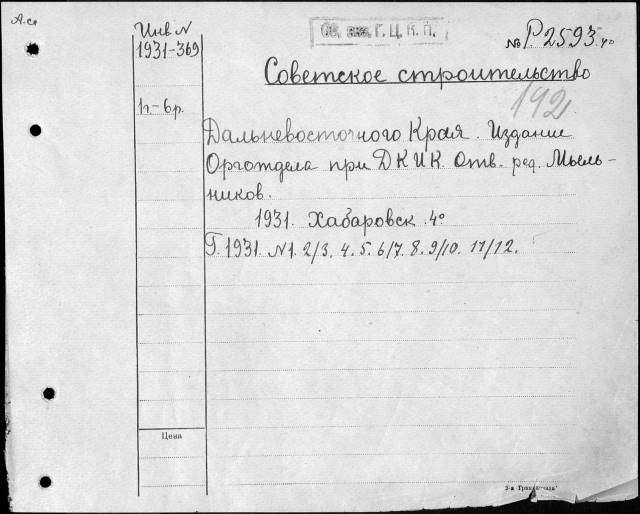 А.ся
Инв N
1931-369
Об. экз. Г. Ц. К. П.
№ Р2593 40
Советское строительство
192
1г.-6р.
Дальневосточного Края. Издание
Орготдела при ДКИК. Отв. ред. Мьель-
ников.
1931. Хабаровск. 4°
Г. 1931. N1. 2/3. 4. 5. 6/7. 8. 9/10. 11/12.
Цена